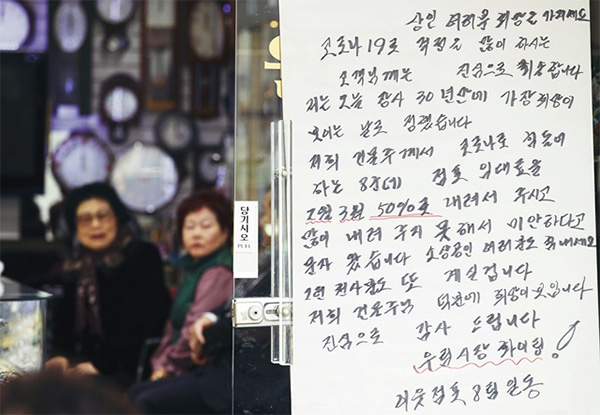 상인 여러분 희망을 가지세요
코로나19로 걱정을 많이 하시는
고객님께는 진심으로 죄송합니다
저는 오늘 장사 30년만에 가장 희망이
보이는 날로 정했습니다
저희 건물주께서 코로나로 힘들어
하는 8개 점포 임대료를
2월 3월 50%로 내려서 주시고
많이 내려 주지 못해서 미안하다고
문자 왔습니다 소상공인 여러분도 힘내세요
이런 천사분도 또 계실겁니다
저희 건물주님 덕분에 희망이 보입니다
진심으로 감사 드립니다
우리시장 화이팅!
이웃점포 8명 일동
당기시오
PULL